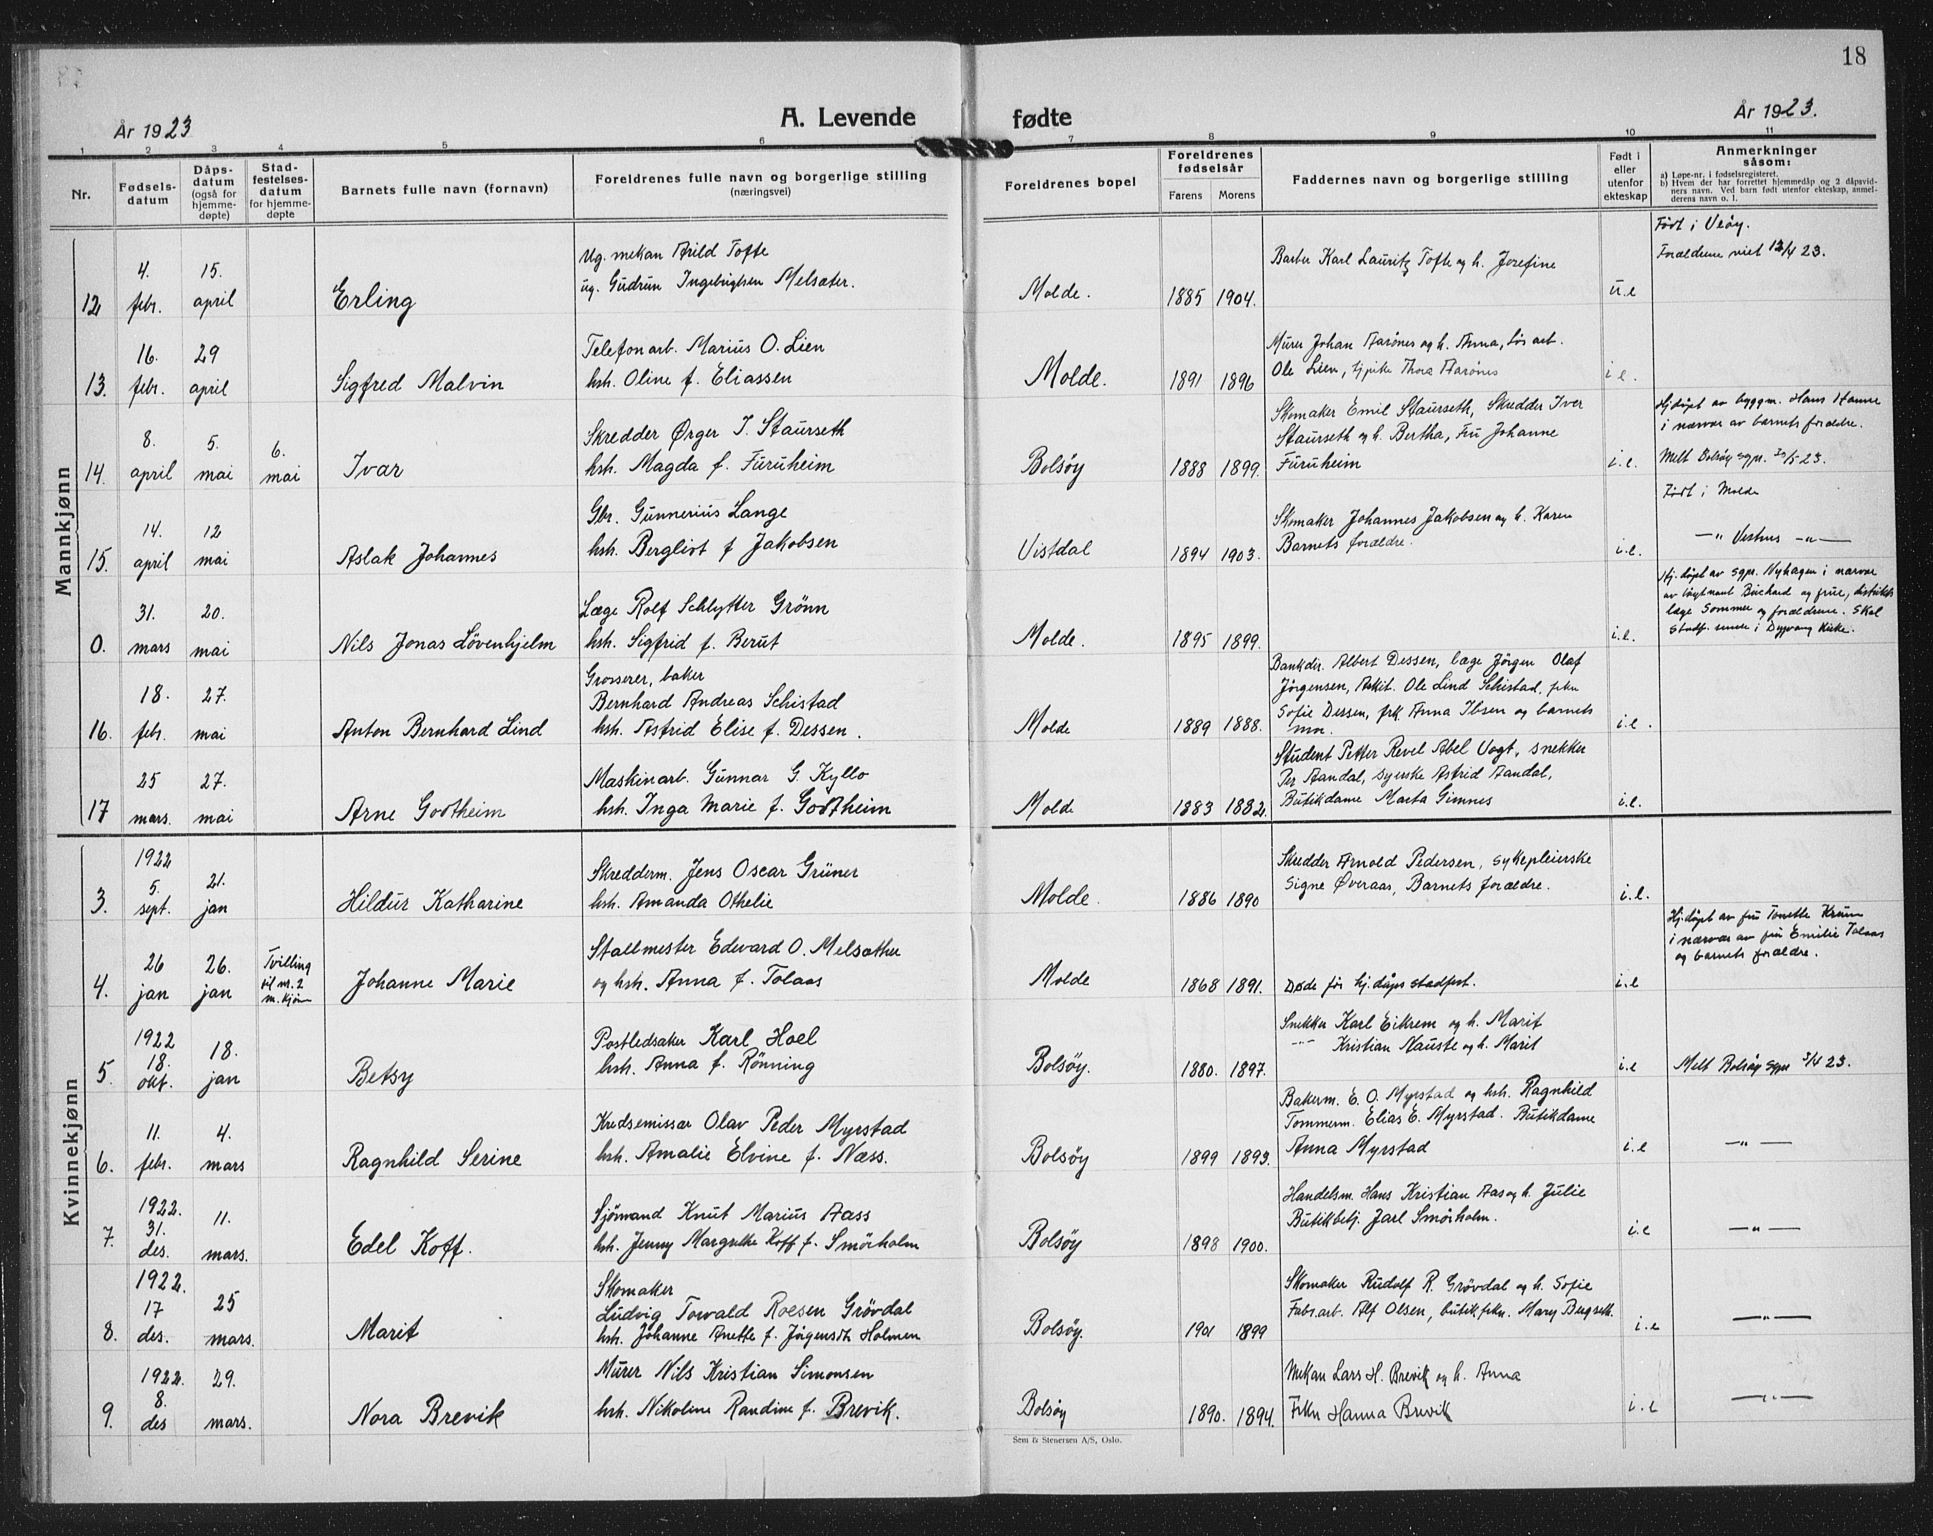 18
År 1923
A. Levende fødte
År 1923.
1 2 3 4 5 6 7 8 9 10 11
Nr.
Fødsels-
datum
Dåps-
datum
(også for
hjemme-
døpte)
Stad-
festelses-
datum
for hjemme-
døpte
Barnets fulle navn (fornavn)
Foreldrenes fulle navn og borgerlige stilling
(næringsvei)
Foreldrenes bopel
Foreldrenes
fødselsår
Farens Morens
Faddernes navn og borgerlige stilling
Født i
eller
utenfor
ekteskap
Anmerkninger
såsom:
a) Løpe-nr. i fødselsregisteret.
b) Hvem der har forrettet hjemmedåp og 2 dåpsvid-
ners navn. Ved barn født utenfor ekteskap, anmel-
derens navn o. l.
Mannkjønn
12
4.
febr.
15.
april
Erling
Ug. mekan Arild Tofte
ug. Gudrun Ingebrigtsen Melsæter.
Molde.
1885 1904.
Barber Karl Lauritz Tofte og h. Josefine
u.e
Født i Veøy.
Forældrene viet 12/4 23.
13.
16.
febr.
29
april
Sigfred Malvin
Telefonarb. Marius O. Lien
hsh. Oline f. Eliassen
Molde.
1891 1896
Murer Johan Aarønes og h. Anna, løsarb.
Ole Lien, pike Thora Aarønes
i e.
14.
8.
april
5.
mai
6.
mai
Ivar
Skredder Ørger I. Staurseth
hsh. Magda f. Furuheim
Bolsøy
1888 1899.
Skomaker Emil Staurseth, Skredder Iver
Staurseth og h. Bertha, Fru Johanne
Furuheim
i.e.
Hj.døpt av byggm. Hans Hanne
i nærvær av barnets forældre.
Melt Bolsøy sgpr. /5 23.
15.
14.
april
12
mai
Aslak Johannes
Gbr. Gunnerius Lange
hsh. Bergliot f Jakobsen
Vistdal
1894 1903.
Skomaker Johannes Jakobsen og h. Karen
Barnets forældre.
i.e.
Født i Molde
—"— Vestnes —"—
0.
31.
mars
20.
mai
Nils Jonas Løvenhjelm
Læge Rolf Schlytter Grönn
hsh. Sigfrid f. Berut
Molde.
1895 1899.
i.e.
Hj. døpt av sgpr. Nyhagen i nærvær
av løytnant Buchard og frue, distrikts
læge Sommer og forældrene. Skal
stadf. senere i Dypvaag kirke.
16.
18.
febr.
27.
mai
Anton Bernhard Lind
Grosserer, baker
Bernhard Andreas Schistad
hsh. Astrid Elise f. Dessen.
Molde
1889 1888.
Bankdir. Albert Dessen, læge Jörgen Olaf
Jörgensen, Arkit. Ole Lind Schistad, frkn
Sofie Dessen, frk. Anna Ibsen og barnets
mor.
i.e.
17
25
mars.
27.
mai
Arne Godtheim
Maskinarb. Gunnar G. Kyllo
hsh. Inga Marie f. Godtheim
Molde
1883 1882.
Student Petter Revel Abel Vogt, snekker
Per Aandal, syerske Astrid Aandal,
Butikdame Marta Gimnes
i.e.
Kvinnekjønn
3.
1922
5.
sept.
21.
jan
Hildur Katharine
Skredderm. Jens Oscar Grüner
hsh. Amanda Othelie
Molde.
1886 1890
Skredder Arnold Pedersen, sykepleierske
Signe Øveraas, Barnets forældre.
i.e.
4.
26
jan
26.
jan
Tvilling
til nr. 2
m.kjøn
Johanne Marie
Stallmester Edvard O. Melsæther
og hsh. Anna f. Tolaas
Molde
1868 1891.
Døde før hj.dåpes stadfest.
i.e
Hj.døpt av fru Tonette Krum
i nærvær av fru Emilie Tolaas
og barnets forældre.
5.
1922
18.
okt.
18.
jan
Betsy
Postledsaker Karl Hoel
hsh. Anna f. Rönning
Bolsøy.
1880. 1897.
Snekker Karl Eikrem og h. Marit
—"— Kristian Nauste og h. Marit
i.e
Melt Bolsøy sgpr 3/4 23.
6.
11.
febr.
4.
mars
Ragnhild Serine
Kredsemissær Olav Peder Myrstad
hsh. Amalie Elvine f. Næss.
Bolsøy
1899 1893.
Bakerm. E. O. Myrstad og hsh. Ragnhild
Tommerm. Elias E. Myrstad. Butikdame
Anna Myrstad
i.e
—"—
7.
1922.
31.
des.
11.
mars.
Edel Koff.
Sjömand Knut Marius Aass
hsh. Jenny Margrethe Koff f. Smörholm
Bolsøy
1898 1900.
Handelsm. Hans Kristian Aas og h. Julie
Butikbetj. Jarl Smörholm.
i.e
—"—
8.
1922.
17
des.
25
mars.
Marit
Skomaker
Ludvig Torvald Roesen Grövdal
hsh. Johanne Anette f. Jörgensdt Holmen
Bolsøy.
1901 1899
Skomaker Rudolf R. Grövdal og h. Sofie
Fabr.arb. Alf Olsen, butikfrkn. Mary Bugseth
i.e
—"—
9.
1922.
8.
des
29.
mars.
Nora Brevik
Murer Nils Kristian Simonsen
hsh. Nikoline Randine f. Brevik.
Bolsøy
1890. 1894.
Mekan Lars H. Brevik og h. Anna
Frkn Hanna Brevik
i.e
—"—
Sem & Stenersen A/S, Oslo.